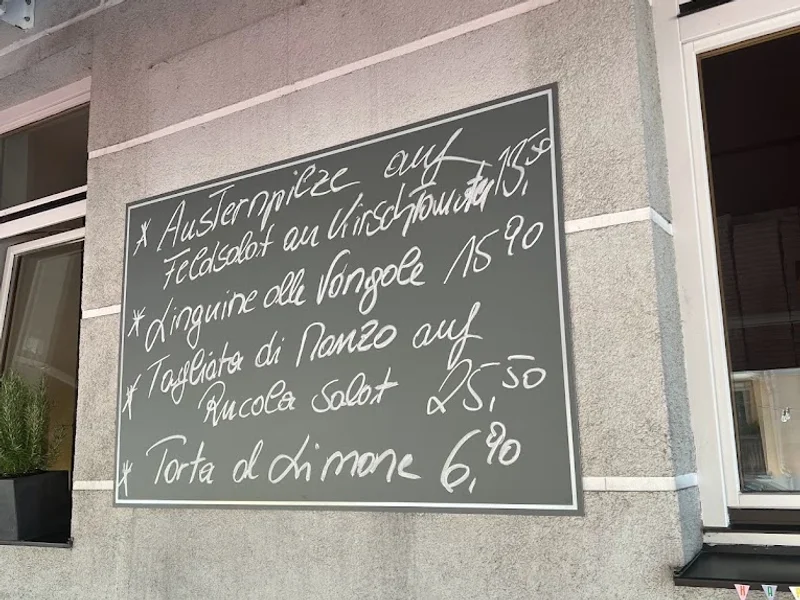 * Austernpilze auf
Feldsalat an Kirschtomaten 13,50
* Linguine alle Vongole 15 90
* Tagliata di Manzo auf
Rucola Salat 25,50
* Torta al Limone 6,90